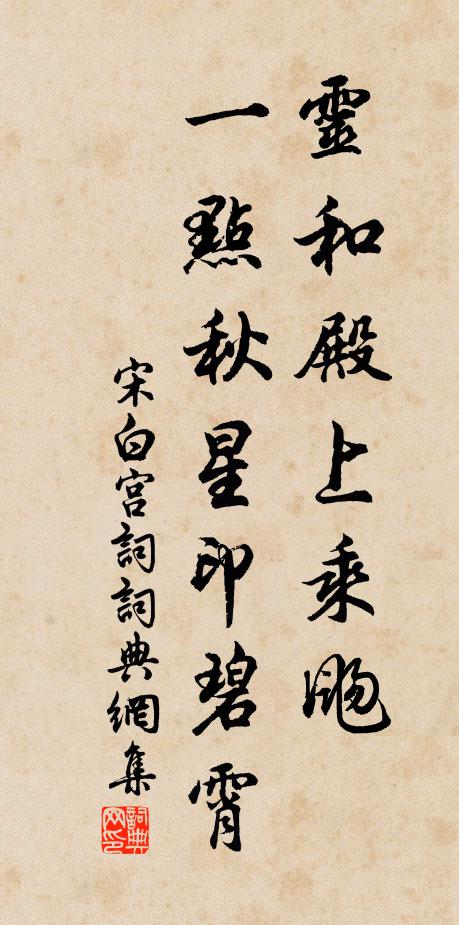 靈和殿上乘飏
一點秋星印碧霄
宋白宮詞詞典網集
詞典网印